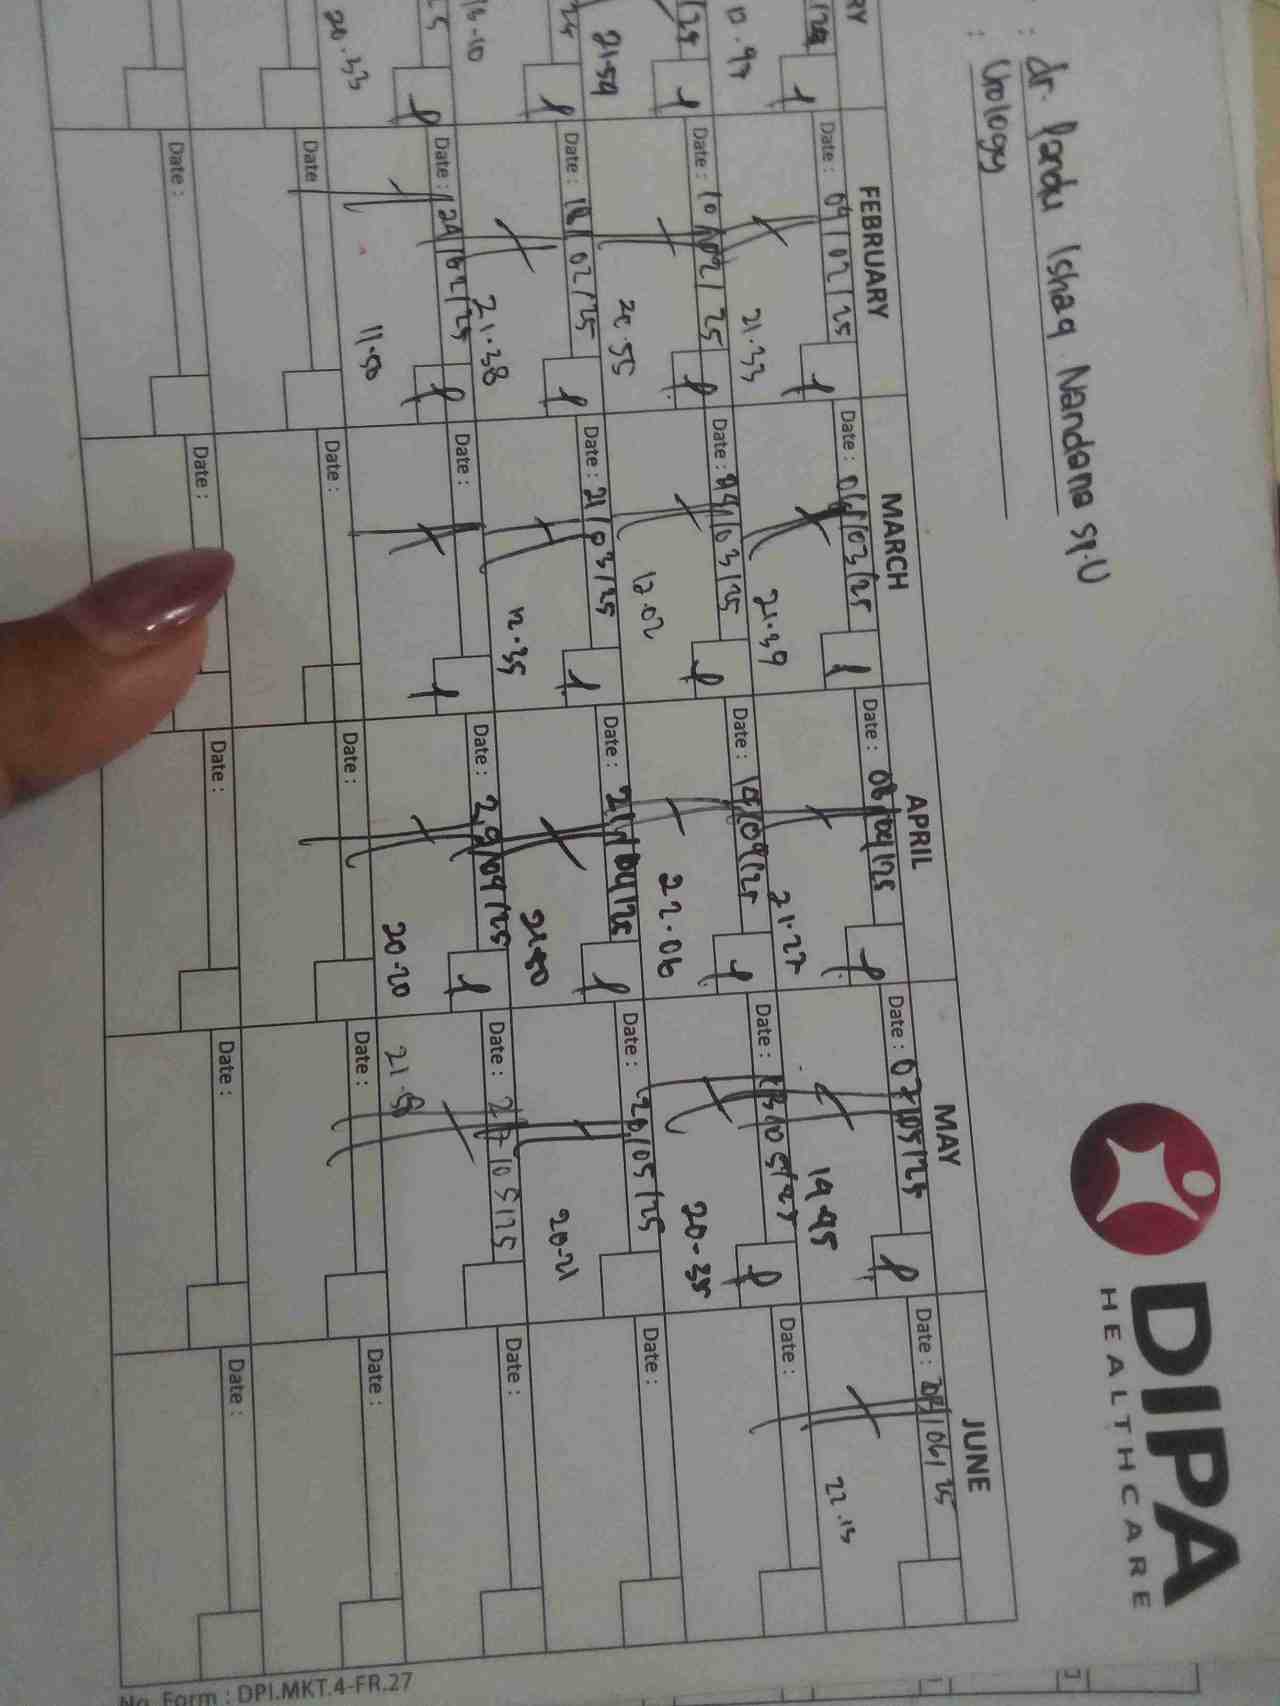 DIPA
HEALTHCARE
: dr. Pandu Ishaq Nandana Sp.U
: Urology
RY
FEBRUARY
MARCH
APRIL
MAY
JUNE
Date : 04/02/25
Date : 06/03/25
Date : 08/04/25
Date : 07/05/25
Date : /06/25
21.33
21.39
21.27
19.45
22.15
Date : 10/02/25
Date : /03/25
Date : 14/04/25
Date : 13/05/25
Date :
21.59
20.55
12.02
22.06
20-35
Date : 18/02/25
Date : 21/03/25
Date : 21/04/25
Date : 20/05/25
Date :
16-10
21.38
12.35
21.50
20-21
Date : 24/02/25
Date :
Date : 29/04/25
Date : 27/05/25
Date :
20.33
11.50
20.20
21.58
Date
Date :
Date :
Date :
Date :
Date :
Date :
Date :
Date :
Date :
No. Form : DPI.MKT.4-FR.27